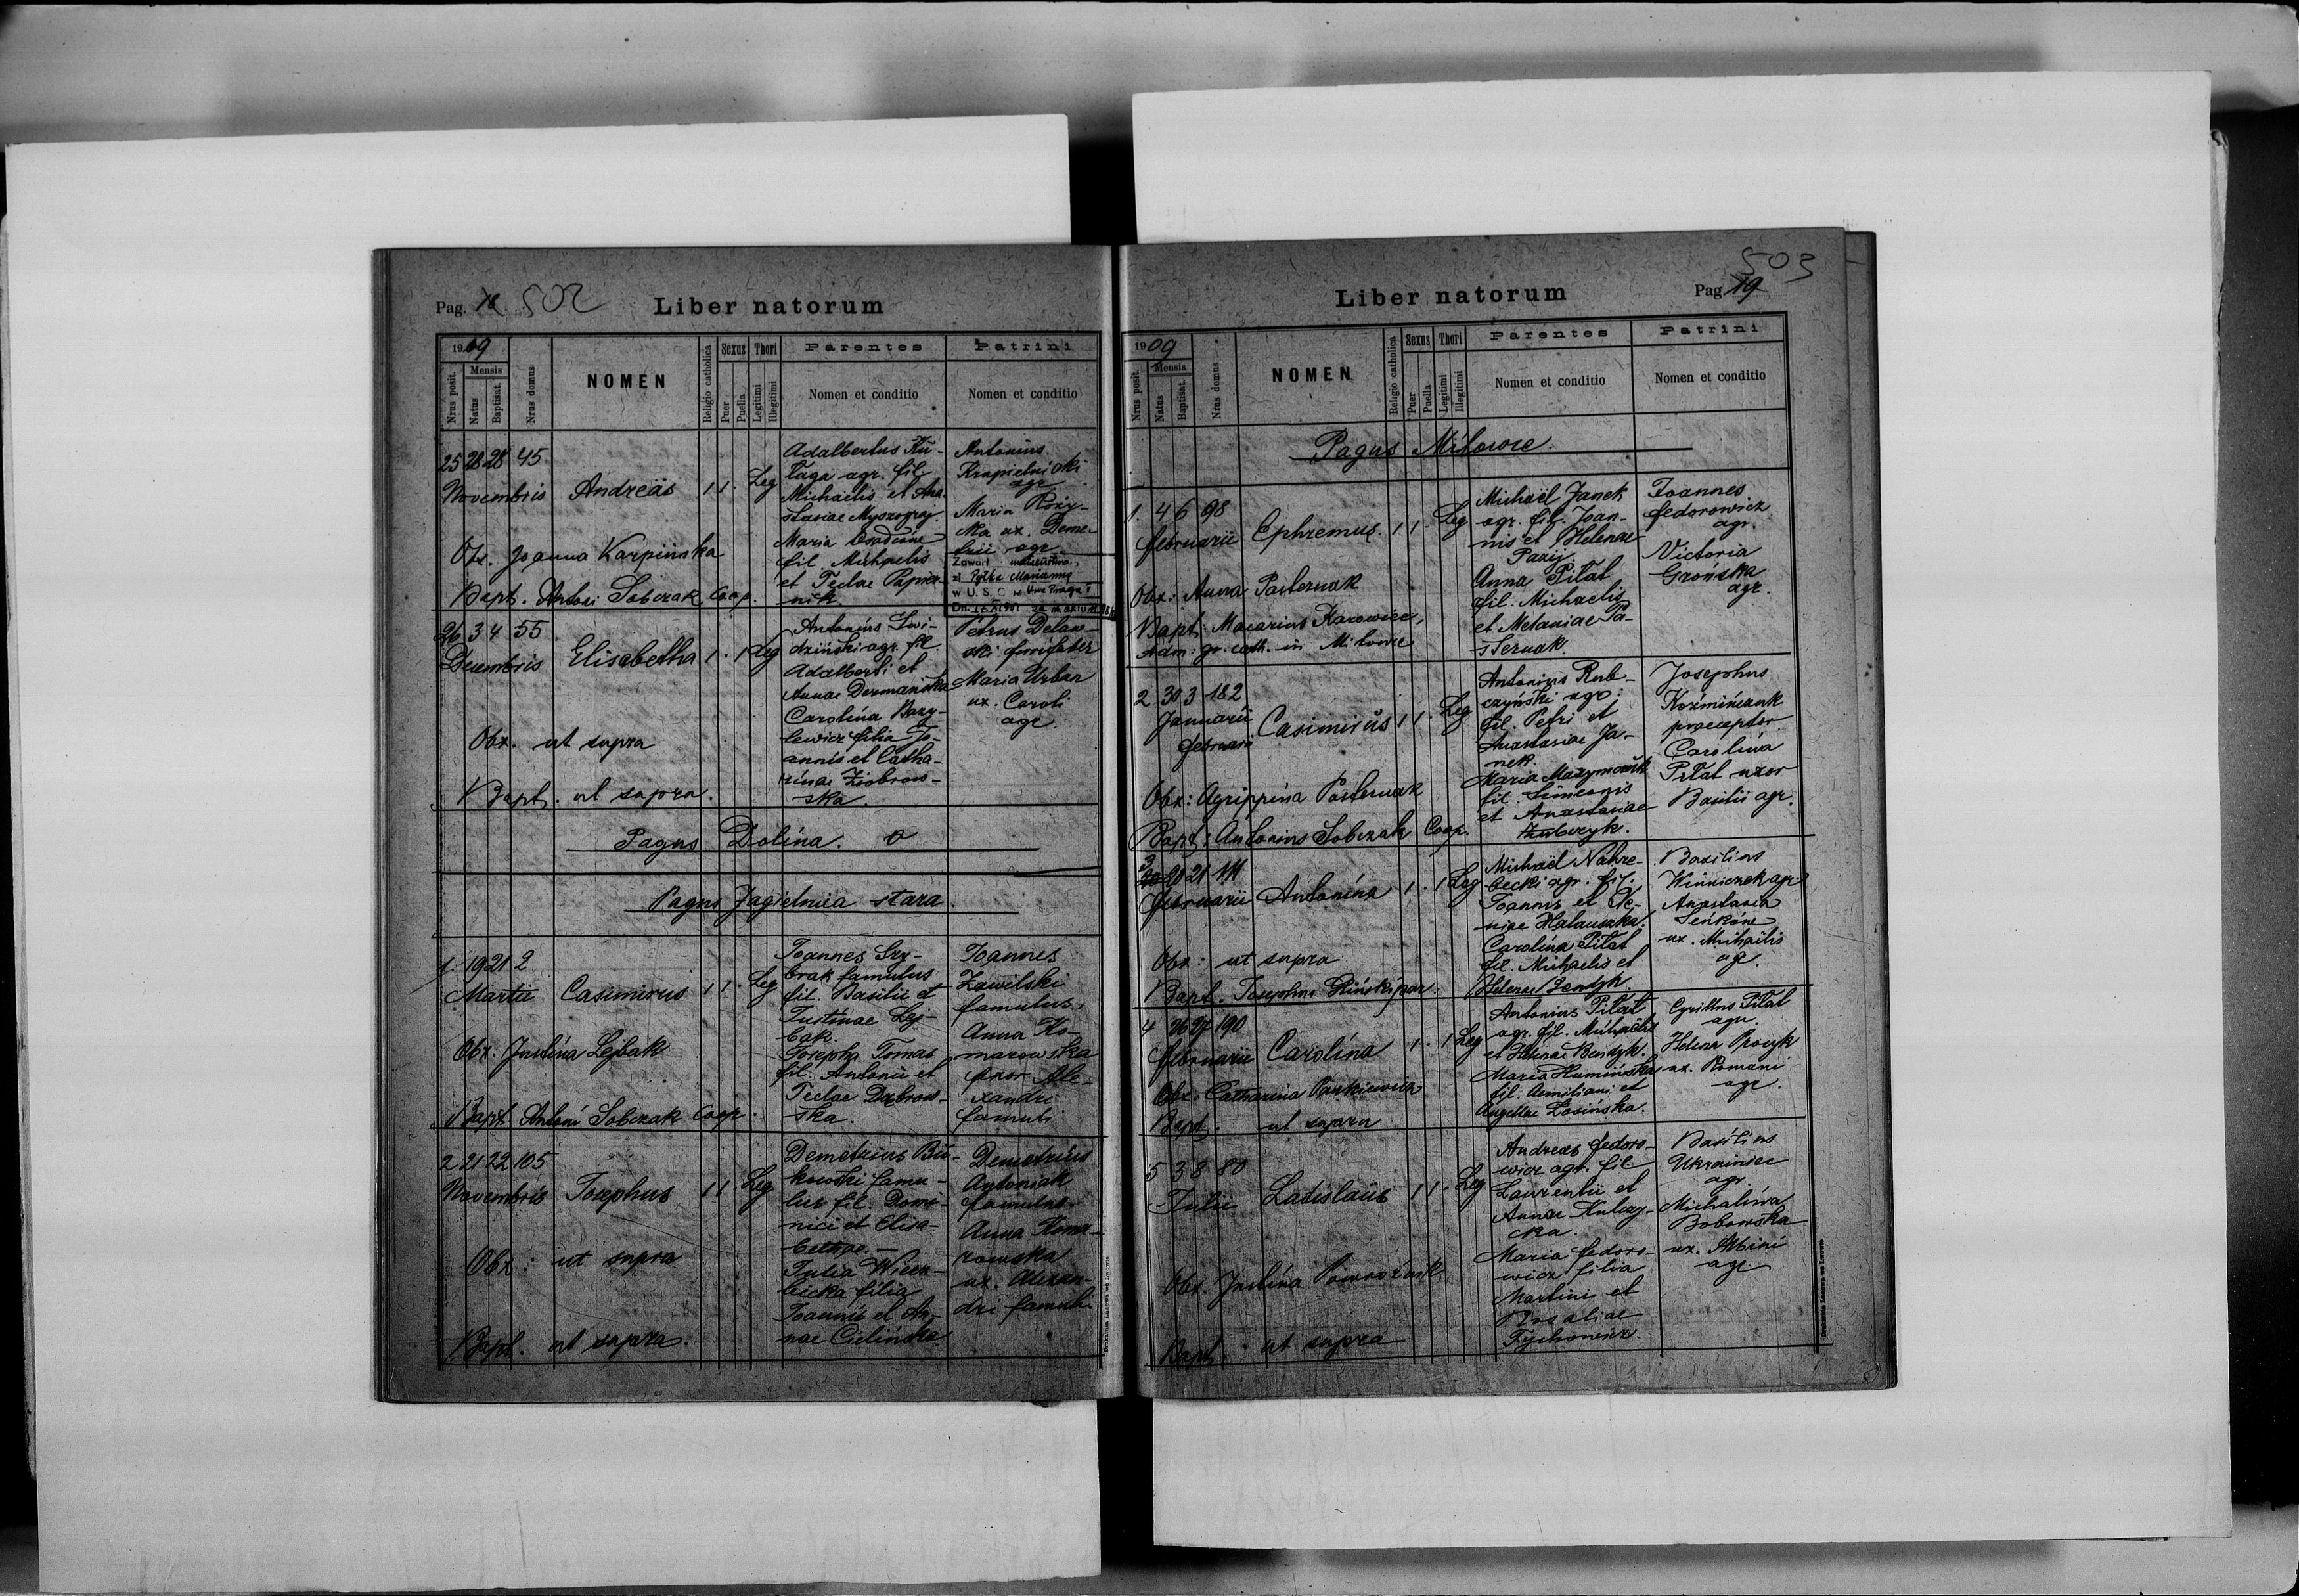 Pag. 18 502 Liber natorum
1909
Nrus posit.
Mensis
Natus
Baptisat.
Nrus domus
NOMEN
Religio catholica
Sexus
Puer
Puella
Thori
Legitimi
Illegitimi
Parentes
Nomen et conditio
Patrini
Nomen et conditio
25 28 28 45
Novembris Andreas 1 1. Leg
Obx. Joanna Karpińska
Bapt. Antoni Sobczak Coop.
Adalbertus Ku-
taga agr. fil.
Michaëlis et Ana-
stasiae Myszograj
Maria
fil. Michaelis
et Teclae Papier-
nik.
Antonius
Krupielnicki
agr.
Maria Róży-
cka ux. Deme-
trii agr.
Zawarł małżeństwo
z Marianną
w U.S.C.
26 3 4 55
Decembris Elisabetha 1. 1 Leg
Obx. ut supra
Bapt. ut supra.
Antonius Świ-
dziński agr. fil.
Adalberti et
Annae Dermańska
Carolina Bazy-
lewicz filia Jo-
annis et Catha-
rinae Ziobrow-
ska.
Petrus Delaw-
ski
Maria Urban
ux. Caroli
agr.
Pagus Dolina. 0
Pagus Jagielnica stara
1. 19 21 2
Martii Casimirus 1 1. Leg
Obx. Justina Lejbak
Bapt. Antoni Sobczak Coop.
Joannes Szy-
brak famulus
fil. Basilii et
Justinae Lej-
bak.
Josepha Tomas
fil. Antonii et
Teclae Dąbrow-
ska.
Joannes
Zawilski
famulus.
Anna Ko-
marowska
uxor Ale-
xandri
famuli
2 21 22 105
Novembris Josephus 1 1. Leg
Obx: ut supra
Bapt. ut supra.
Demetrius Bu-
kowski famu-
lus fil. Domi-
nici et Elisa-
bethae. —
Julia Wierz-
bicka filia
Joannis et An-
nae Cielińska.
Demetrius
Antoniak
famulus.
Anna Koma-
rowska
ux. Alexan-
dri famuli.
503
Liber natorum Pag. 19
1909
Nrus posit.
Mensis
Natus
Baptisat.
Nrus domus
NOMEN
Religio catholica
Sexus
Puer
Puella
Thori
Legitimi
Illegitimi
Parentes
Nomen et conditio
Patrini
Nomen et conditio
Pagus Miłowce.
1. 4 6 98
februarii Ephremus. 1 1. Leg
Obx: Anna Pasternak
Bapt: Macarius Karowiec,
Adm: gr. cath. in Miłowce
Michaël Janek
agr. fil. Joan-
nis et Helenae
Pazij.
Anna Piłat
fil. Michaelis
et Melaniae Pa-
sternak.
Joannes
fedorowicz
agr.
Victoria
Grońska
agr.
2 30 3 182
Januarii
februarii Casimirus 1 1. Leg
Obx: Agrippina Pasternak
Bapt: Antonius Sobczak Coop.
Antonius Rub-
czyński agr:
fil. Petri et
Anastasiae Ja-
nek.
Maria Maxymczuk
fil. Simeonis
et Anastasiae
Josephus
Koźmińczuk
praeceptor
Carolina
Piłat uxor
Basilii agr.
3 20 21 111
februarii Antonina 1. 1 Leg
Obx: ut supra
Bapt. Josephus Gliński par.
Michaël Nahre-
becki agr. fil.
Joannis et Xe-
niae Hałauszka.
Carolina Piłat
fil. Michaelis et
Helenae Bendyk.
Basilius
Winniczek agr.
Anastasia
Seńków
ux. Michaëlis
agr.
4 26 27 190
februarii Carolina 1. 1 Leg
Obx: Catharina Pankiewicz
Bapt. ut supra
Antonius Piłat
agr. fil. Michaëlis
et Helenae Bendyk.
Maria Humińska
fil. Aemiliani et
Angelae Łosińska.
Cyrillus Piłat
agr.
Helena Procyk
ux. Romani
agr.
5 3 8 80
Julii Ladislaus 1 1. Leg
Obx. Justina Powroźnik
Bapt. ut supra
Andreas fedoro-
wicz agr. fil
Laurentii et
Annae Kulczy-
cka.
Maria fedoro-
wicz filia
Martini et
Rosaliae
Tychowicz.
Basilius
Ukrainiec
agr.
Michalina
Bobowska
ux. Albini
agr.